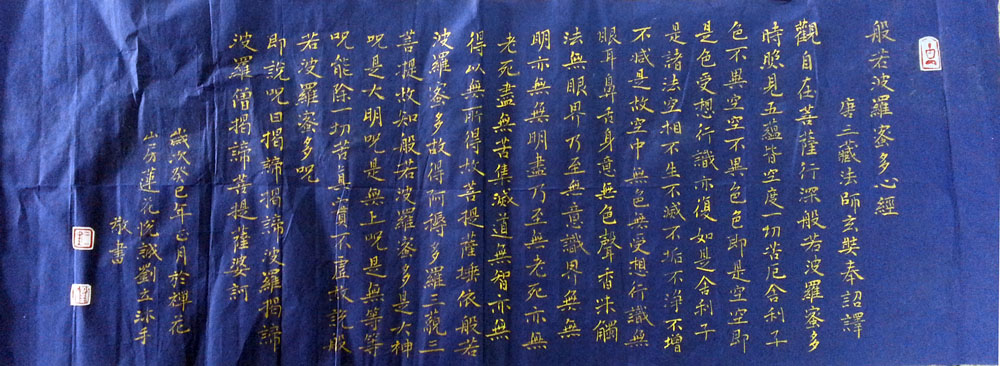 般若波羅蜜多心經
唐三藏法師玄奘奉詔譯
觀自在菩薩行深般若波羅蜜多
時照見五蘊皆空度一切苦厄舍利子
色不異空空不異色色即是空空即
是色受想行識亦復如是舍利子
是諸法空相不生不滅不垢不淨不增
不減是故空中無色無受想行識無
眼耳鼻舌身意無色聲香味觸
法無眼界乃至無意識界無無
明亦無無明盡乃至無老死亦無
老死盡無苦集滅道無智亦無
得以無所得故菩提薩埵依般若
波羅蜜多故得阿耨多羅三藐三
菩提故知般若波羅蜜多是大神
呪是大明呪是無上呪是無等等
呪能除一切苦真實不虛故說般
若波羅蜜多呪
即說呪曰揭諦揭諦波羅揭諦
波羅僧揭諦菩提薩婆訶
歲次癸巳年正月於禪花
山房蓮花院誠劉手
敬書